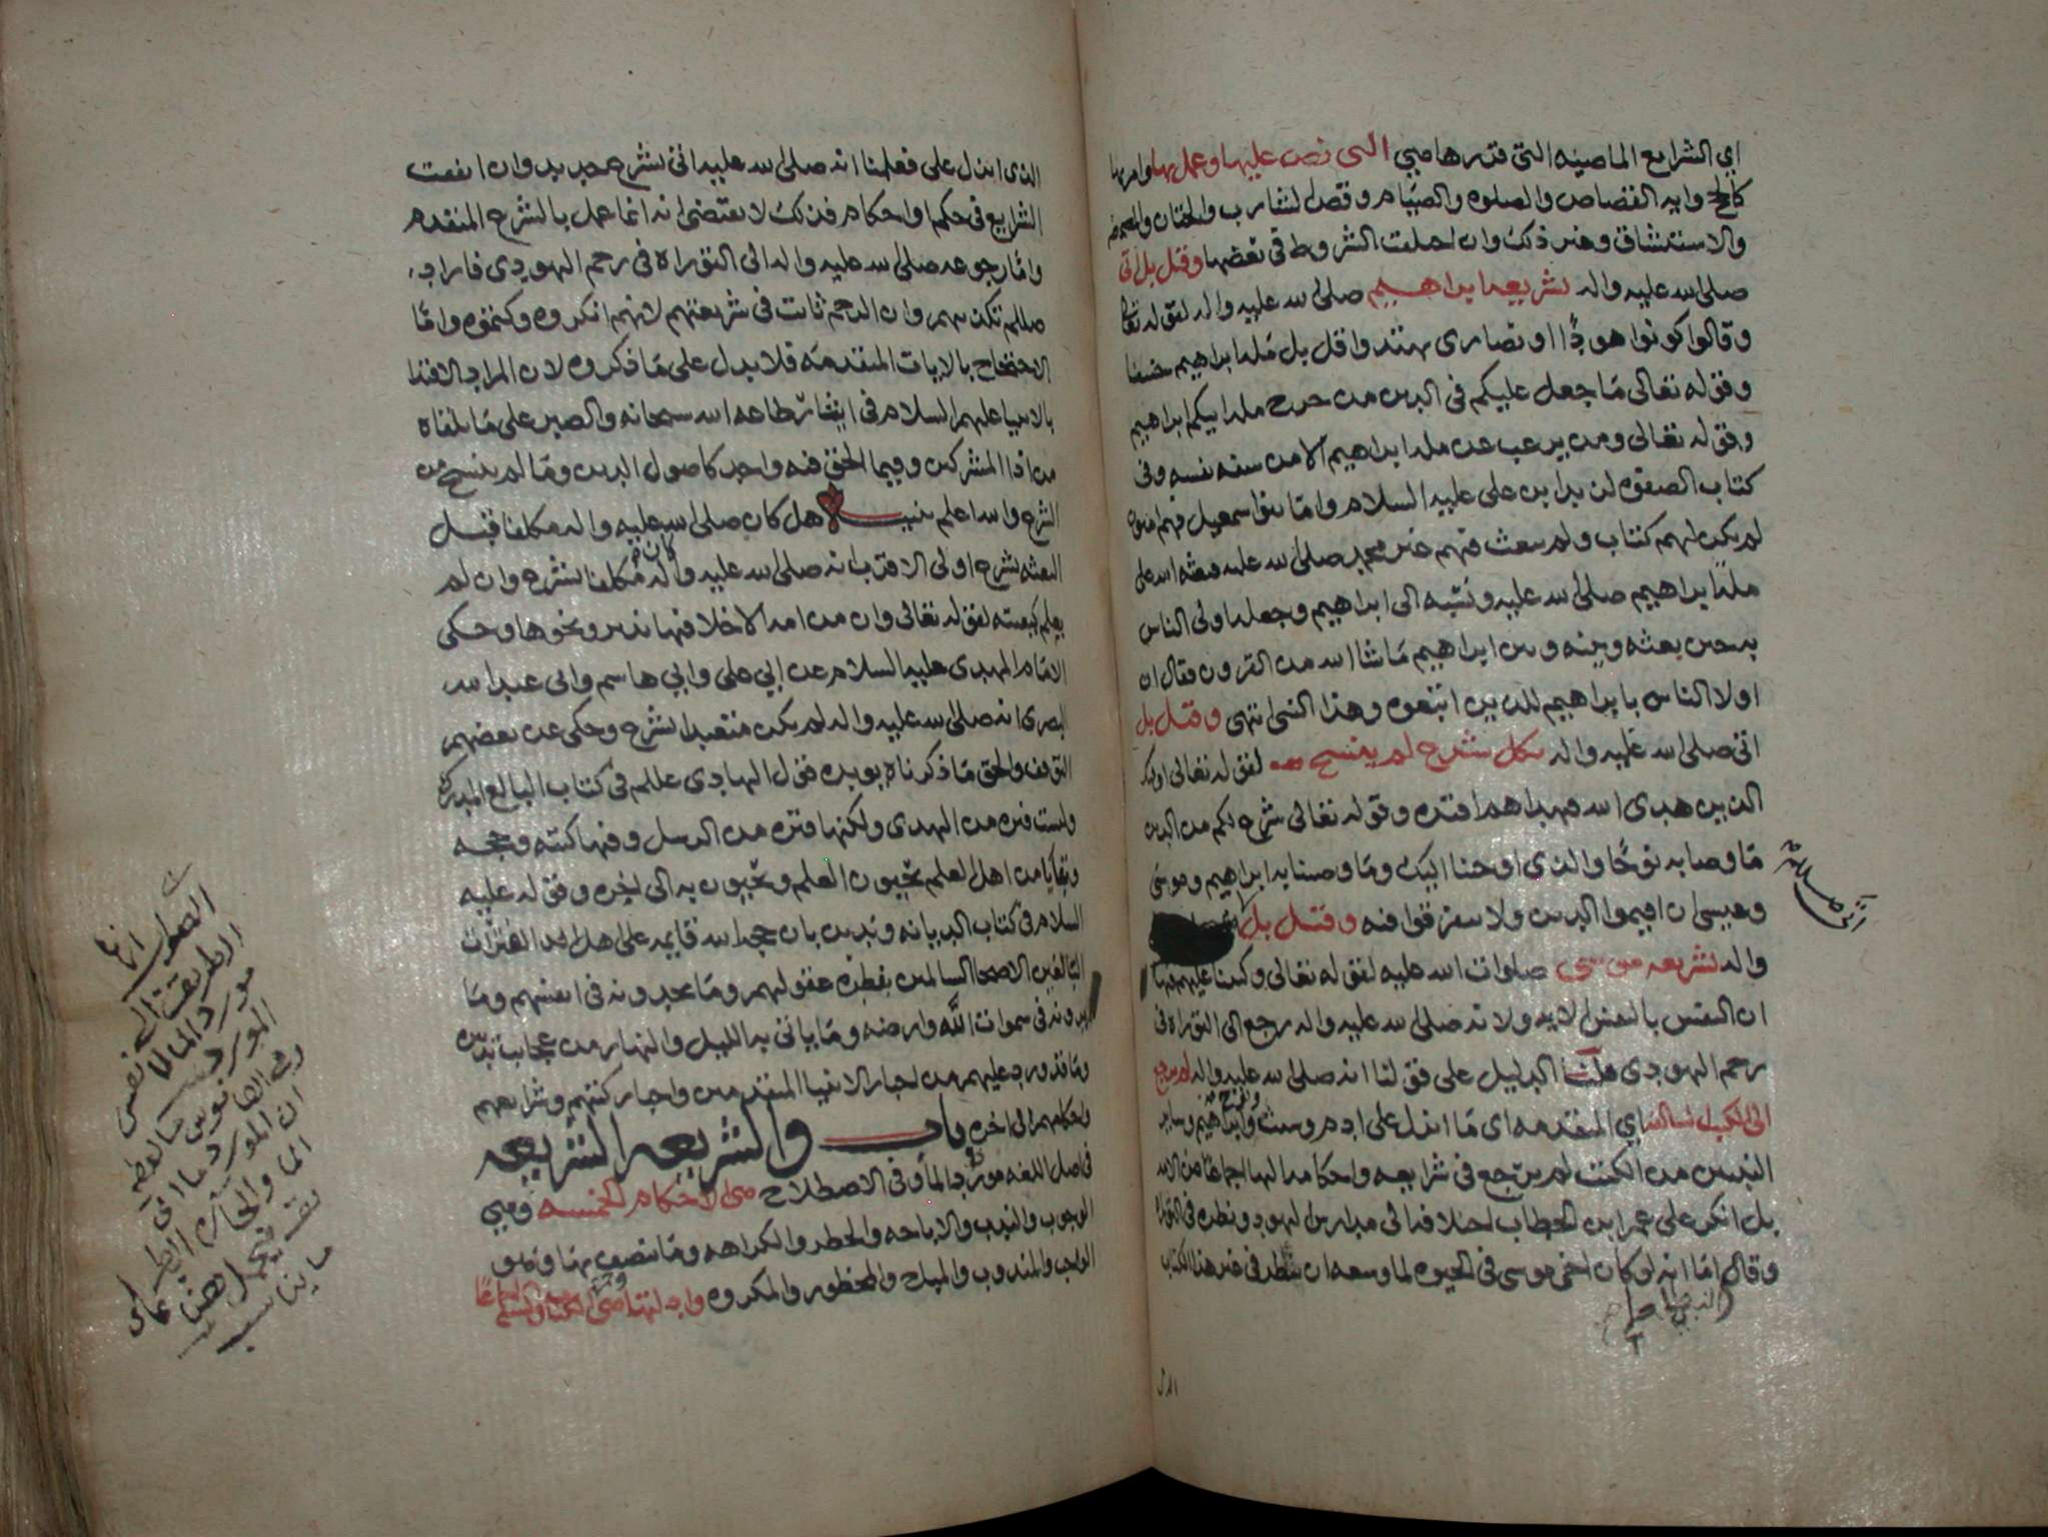 اي الشرايع الماضيه التي قررها هي التي نص عليها وعمل بها وامر بها
كالحج وايه القصاص والصلوه والصيام وقص الشارب والختان والمضمضه
والاستنشاق وغير ذلك وان اختلفت الشروط في بعضها وقيل بل اتى
صلى الله عليه واله بشريعه ابراهيم صلى الله عليه واله لقوله تعالى
وقالوا كونوا هودًا او نصارى تهتدوا قل بل مله ابراهيم حنيفا
وقوله تعالى مَا جعل عليكم في الدين من حرج مله ابيكم ابراهيم
وقوله تعالى ومن يرغب عن مله ابراهيم الا من سفه نفسه وفي
كتاب الصفوه لزيد ابن علي عليه السلام وامَا بنوا اسمعيل فهم امه
لم يكن لهم كتاب ولم يبعث فيهم غير محمد صلى الله عليه فبعثه الله على
مله ابراهيم صلى الله عليه ونسبه الى ابراهيم وجعله اولى الناس
به حين بعثه وبينه وبين ابراهيم مَا شا الله من القرون فقال ان
اولا الناس بابراهيم للذين اتبعوه وهذا النبي انتهى وقيل بل
اتى صلى الله عليه واله بكل شرع لم ينسخ لقوله تعالى اوليك
الذين هدى الله فبهداهم اقتده وقوله تعالى شرع لكم من الدين
مَا وصا به نوحًا والذي اوحينا اليك ومَا وصينا به ابراهيم وموسى
وعيسى ان اقيموا الدين ولا تتفرقوا فيه وقيل بل
اتى صلى الله عليه
واله بشريعه موسى صلوات الله عليه لقوله تعالى وكتبنا عليهم فيها
ان النفس بالنفس الايه ولانه صلى الله عليه واله رجع الى التوراه في
رجم اليهودي قلنا الدليل على قولنا انه صلى الله عليه واله لم يرجع
الى الكتب السالفه اي المتقدمه اي مَا انزل على ادم وشيث وابراهيم وساير
النبيين من الكتب لم يرجع في شرايعه واحكامه اليها اجماعًا من الامه
بل انكر على عمر ابن الخطاب اختلافه الى مدارس اليهود ونظره في التوراه
وقال امَا انه لو كان اخي موسى في الحيوه لما وسعه ان ينظر في غير هذا الكتاب
الذي انزل علي فعلمنا انه صلى الله عليه اتى بشرع جديد وان اتفقت
الشرايع في حكم او احكام فذلك لا يقتضي انه انما عمل بالشرع المتقدم
وامَّا رجوعه صلى الله عليه واله الى التوراه في رجم اليهودي فاراد
صللم تكذيبهم وان الرجم ثابت في شريعتهم لانهم انكروه وكتموه وامَّا
الاحتجاج بالايات المتقدمه فلا يدل على مَا ذكروه لان المراد الاقتدا
بالانبيا عليهم السلام في ايثار طاعه الله سبحانه والصبر على مَا يلقاه
من اذا المشركين وفيما الحق فيه واحد كاصول الدين ومَا لم ينسخ من
الشرع والله اعلم تنبيه هل كان صلى الله عليه واله مكلفا قبل
البعثه بشرع او لا الاقرب انه صلى الله عليه واله كان مُكلفا بشرع وان لم
يعلم كيفيته لقوله تعالى وان من امه الا خلا فيها نذير ونحوها وحكى
الامَام المهدي عليه السلام عن ابي علي وابي هاشم وابي عبد الله
البصري انه صلى الله عليه واله لم يكن متعبدا بشرع وحكى عن بعضهم
التوقف والحق مَا ذكرناه يويده قول الهادي عللم في كتاب البالغ المدرك
وليست فتره من الهدى ولكنها فتره من الرسل وفيها كتبه وحججه
وبقايا من اهل العلم يحيون العلم ويحيون به الى اخره وقوله عليه
السلام في كتاب الديانه وندين بان حجج الله قايمه على اهل هذه الفترات
البالغين الاصحا السالمين بفطره عقولهم ومَا يجدونه في انفسهم ومَا
يرونه في سموات اللَّه وارضه ومَا ياتي به الليل والنهار من عجايب تدبيره
ومَا قد ورد عليهم من اخبار الانبيا المتقدمين واخبار كتبهم وشرايعهم
واحكامهم الى اخره باب والشريعه الشريعه
في اصل اللغه مورد الما وفي الاصطلاح هي الاحكام الخمسه وهي
الوجوب والندب والاباحه والحظر والكراهه ومَا يتصف بها وهو
الواجب والمندوب والمباح والمحظور والمكروه وادلتها هي الكتاب والسنه